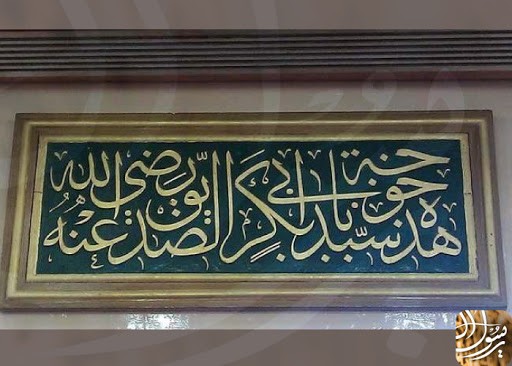 هذه خوخة سيدنا ابي بكر الصديق رضي الله عنه